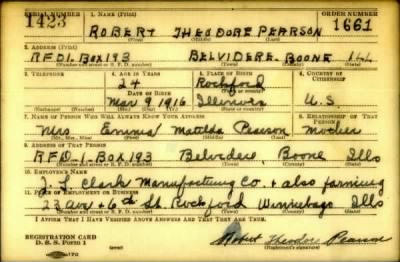 SERIAL NUMBER 1. NAME (Print) ORDER NUMBER
1423 ROBERT THEODORE PEARSON 1661
(First) (Middle) (Last)
2. ADDRESS (Print)
RFD1. BOX193 BELVIDERE. BOONE ILL
(Number and street or R. F. D. number) (Town) (County) (State)
3. TELEPHONE 4. AGE IN YEARS 5. PLACE OF BIRTH 6. COUNTRY OF CITIZENSHIP
24 Rockford
DATE OF BIRTH (Town or county)
Mar 9 1916 Illinois U.S.
(Exchange) (Number) (Mo.) (Day) (Yr.) (State or country)
7. NAME OF PERSON WHO WILL ALWAYS KNOW YOUR ADDRESS 8. RELATIONSHIP OF THAT PERSON
Mrs. Emma Matilda Pearson Mother
(Mr., Mrs., Miss) (First) (Middle) (Last)
9. ADDRESS OF THAT PERSON
RFD-1-BOX193 Belvidere, Boone Ills
(Number and street or R. F. D. number) (Town) (County) (State)
10. EMPLOYER'S NAME
J. L. Clark Manufacturing Co. + also farming
11. PLACE OF EMPLOYMENT OR BUSINESS
23 ave + 6th St. Rockford Winnebago Ills
(Number and street or R. F. D. number) (Town) (County) (State)
I AFFIRM THAT I HAVE VERIFIED ABOVE ANSWERS AND THAT THEY ARE TRUE.
REGISTRATION CARD
D. S. S. Form 1 Robert Theodore Pearson
(Registrant's signature)